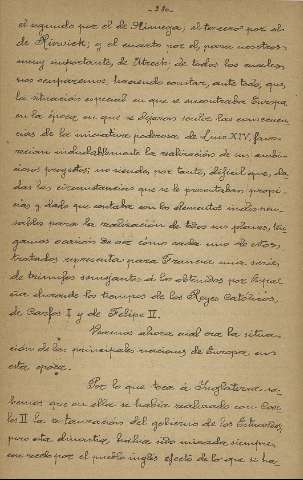 - 380 -
el segundo por el de Nimega; el tercero por el
de Riswick; y el cuarto por el, para nosotros
muy importante, de Utrech: de todos los cuales
nos ocuparemos, haciendo constar, ante todo, que,
la situación especial en que se encontraba Europa
en la época en que se dejaron sentir las consecuen-
cias de la iniciativa poderosa de Luis XIV, favo-
recían indudablemente la realización de sus ambi-
ciosos proyectos; no siendo, por tanto, difícil que, da-
das las circunstancias que se le presentaban propi-
cias y dado que contaba con los elementos indispen-
sables para la realización de todos sus planes, ten-
gamos ocasión de ver cómo cada uno de estos,
tratados representa para Francia una serie,
de triunfos semejantes á los obtenidos por Espa-
ña durante los tiempos de los Reyes Católicos,
de Carlos I y de Felipe II.
Veamos ahora cual era la situa-
ción de las principales naciones de Europa, en
esta época.
Por lo que toca á Inglaterra, sa-
bemos que en ella se había realizado con Car-
los II la restauración del gobierno de los Estuardos,
pero esta dinastía había sido mirada siempre
con recelo por el pueblo inglés efecto de lo que se ha-